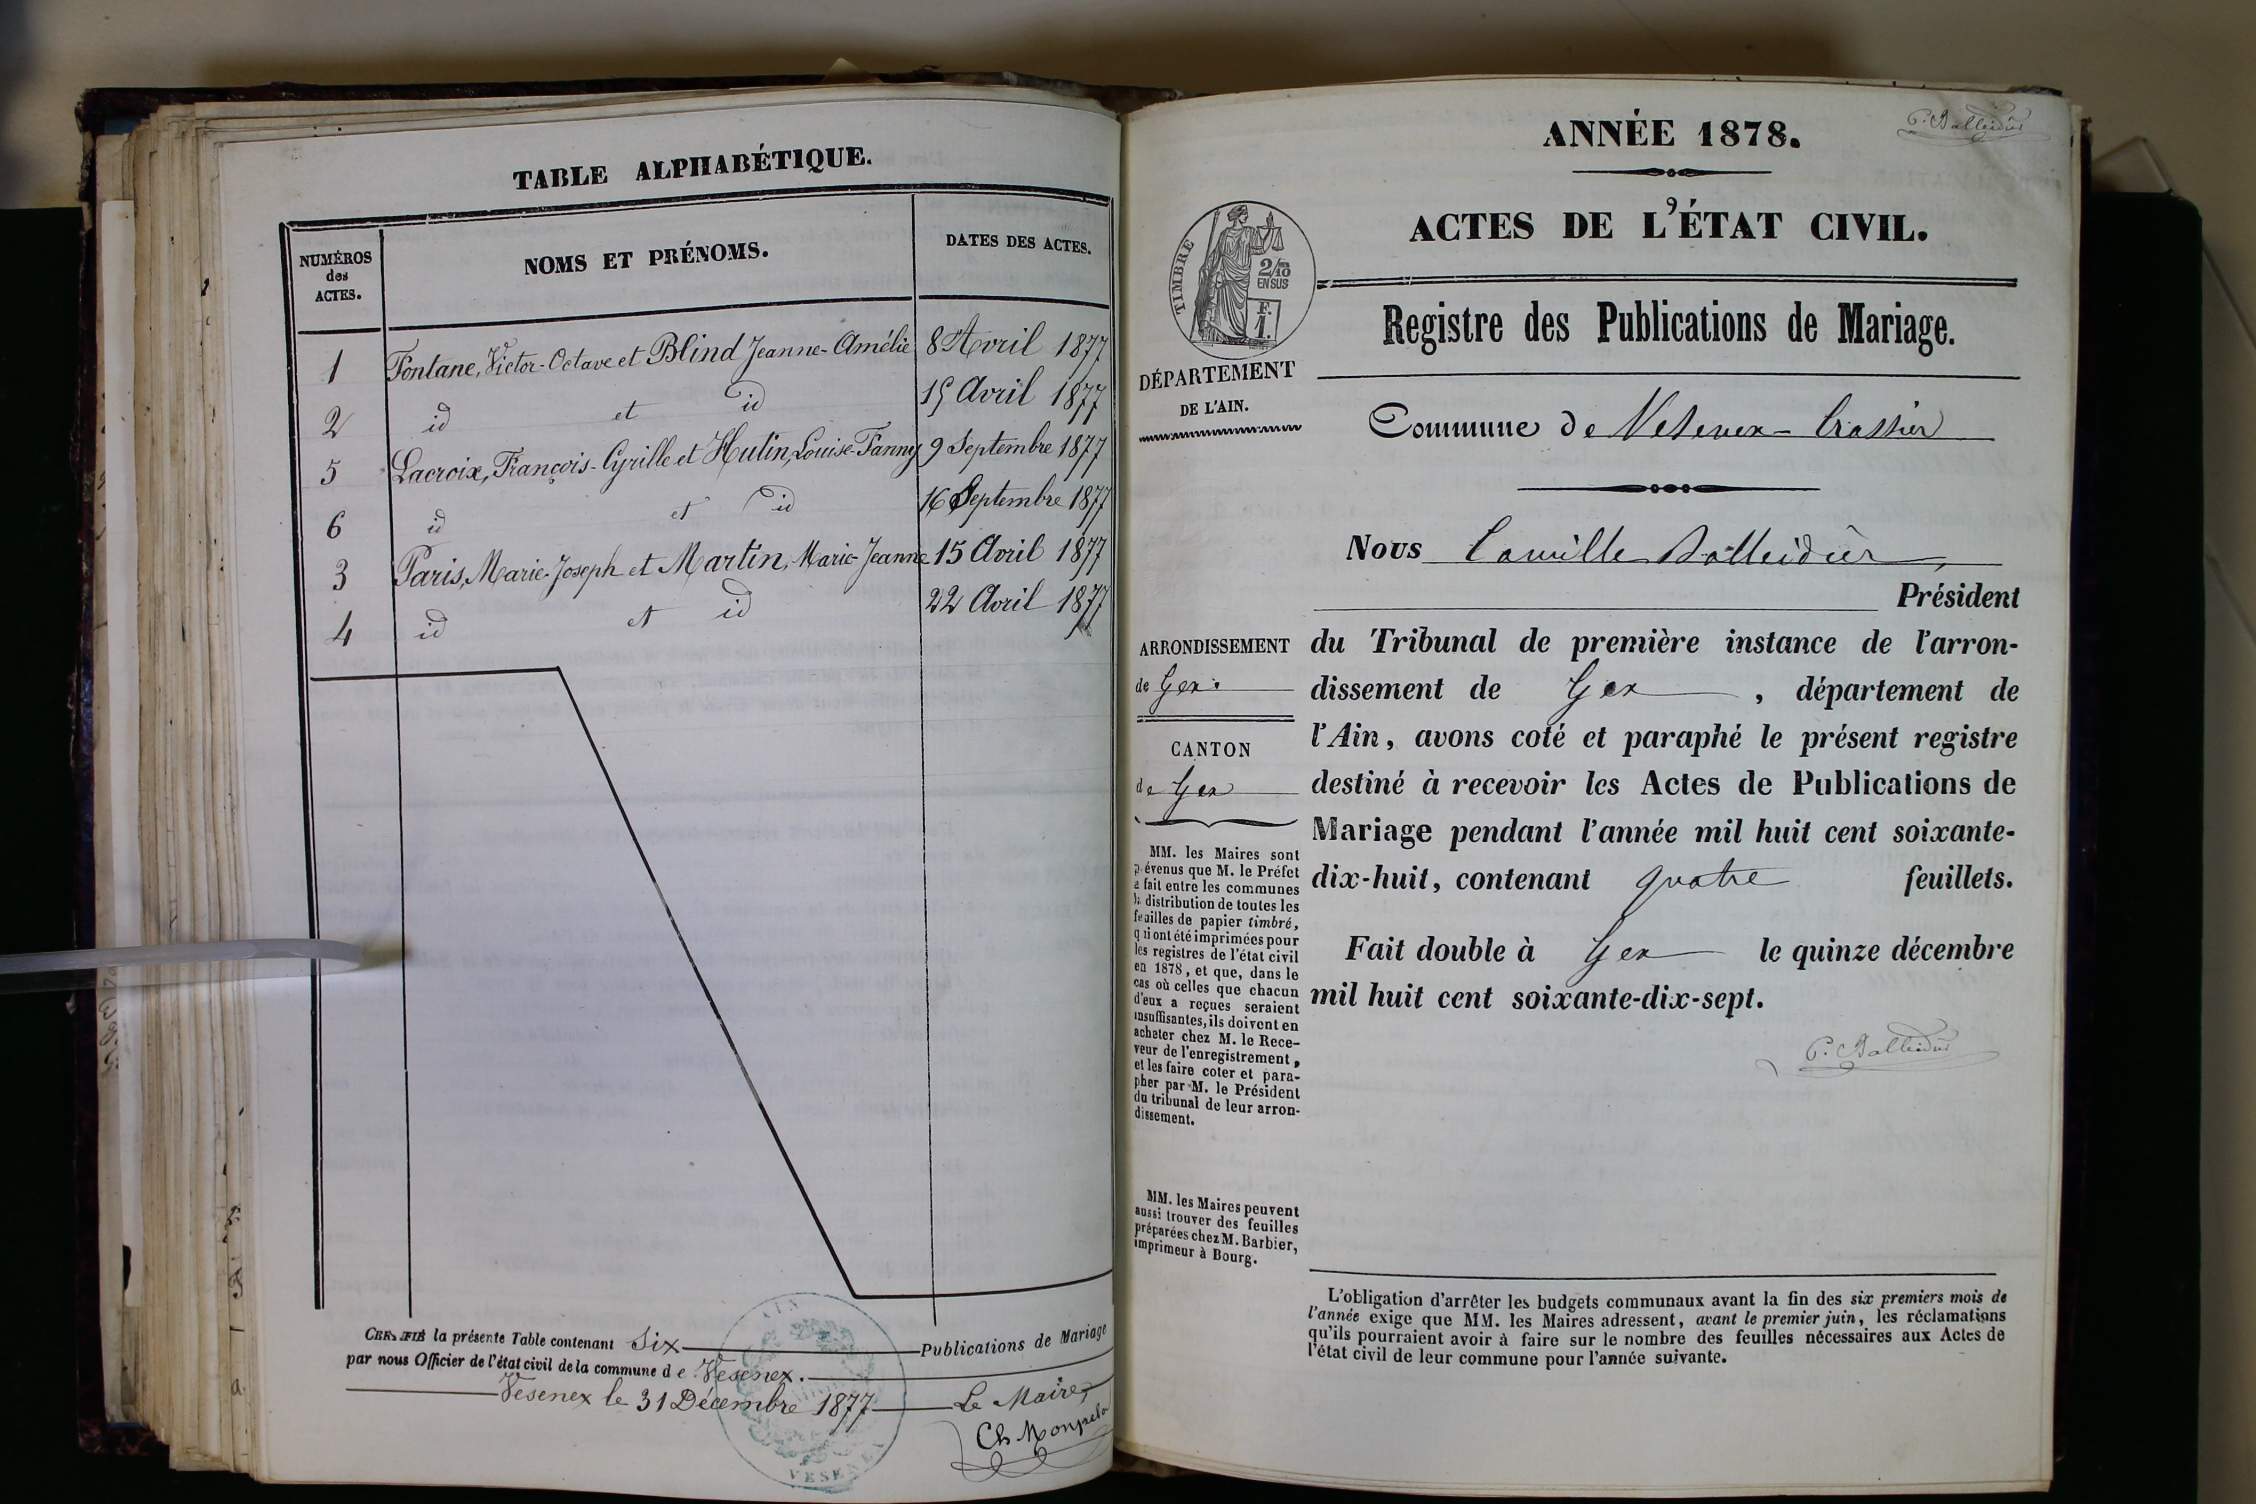 TABLE ALPHABÉTIQUE.
NUMÉROS des ACTES.
NOMS ET PRÉNOMS.
DATES DES ACTES.
1 Fontane, Victor-Octave et Blind Jeanne-Amélie 8 Avril 1877
2 id et id 15 Avril 1877
5 Lacroix, François-Cyrille et Hutin, Louise-Fanny 9 Septembre 1877
6 id et id 16 Septembre 1877
3 Paris, Marie-Joseph et Martin, Marie-Jeanne 15 Avril 1877
4 id et id 22 Avril 1877
CERTIFIÉ la présente Table contenant Six Publications de Mariage
par nous Officier de l'état civil de la commune de Vesenex.
Vesenex le 31 Décembre 1877 Le Maire,
AIN
VESENEX
ANNÉE 1878.
ACTES DE L'ÉTAT CIVIL.
TIMBRE
2/10
EN SUS
F.
1.
Registre des Publications de Mariage.
DÉPARTEMENT
DE L'AIN.
Commune de Vesenex-Crassier
Nous Camille Balleidier,
Président
du Tribunal de première instance de l'arron-
dissement de Gex, département de
l'Ain, avons coté et paraphé le présent registre
destiné à recevoir les Actes de Publications de
Mariage pendant l'année mil huit cent soixante-
dix-huit, contenant quatre feuillets.
Fait double à Gex le quinze décembre
mil huit cent soixante-dix-sept.
C. Balleidier
ARRONDISSEMENT
de Gex.
CANTON
de Gex
MM. les Maires sont
prévenus que M. le Préfet
a fait entre les communes
la distribution de toutes les
feuilles de papier timbré,
qui ont été imprimées pour
les registres de l'état civil
en 1878, et que, dans le
cas où celles que chacun
d'eux a reçues seraient
insuffisantes, ils doivent en
acheter chez M. le Rece-
veur de l'enregistrement,
et les faire coter et para-
pher par M. le Président
du tribunal de leur arron-
dissement.
MM. les Maires peuvent
aussi trouver des feuilles
préparées chez M. Barbier,
imprimeur à Bourg.
L'obligation d'arrêter les budgets communaux avant la fin des six premiers mois de
l'année exige que MM. les Maires adressent, avant le premier juin, les réclamations
qu'ils pourraient avoir à faire sur le nombre des feuilles nécessaires aux Actes de
l'état civil de leur commune pour l'année suivante.